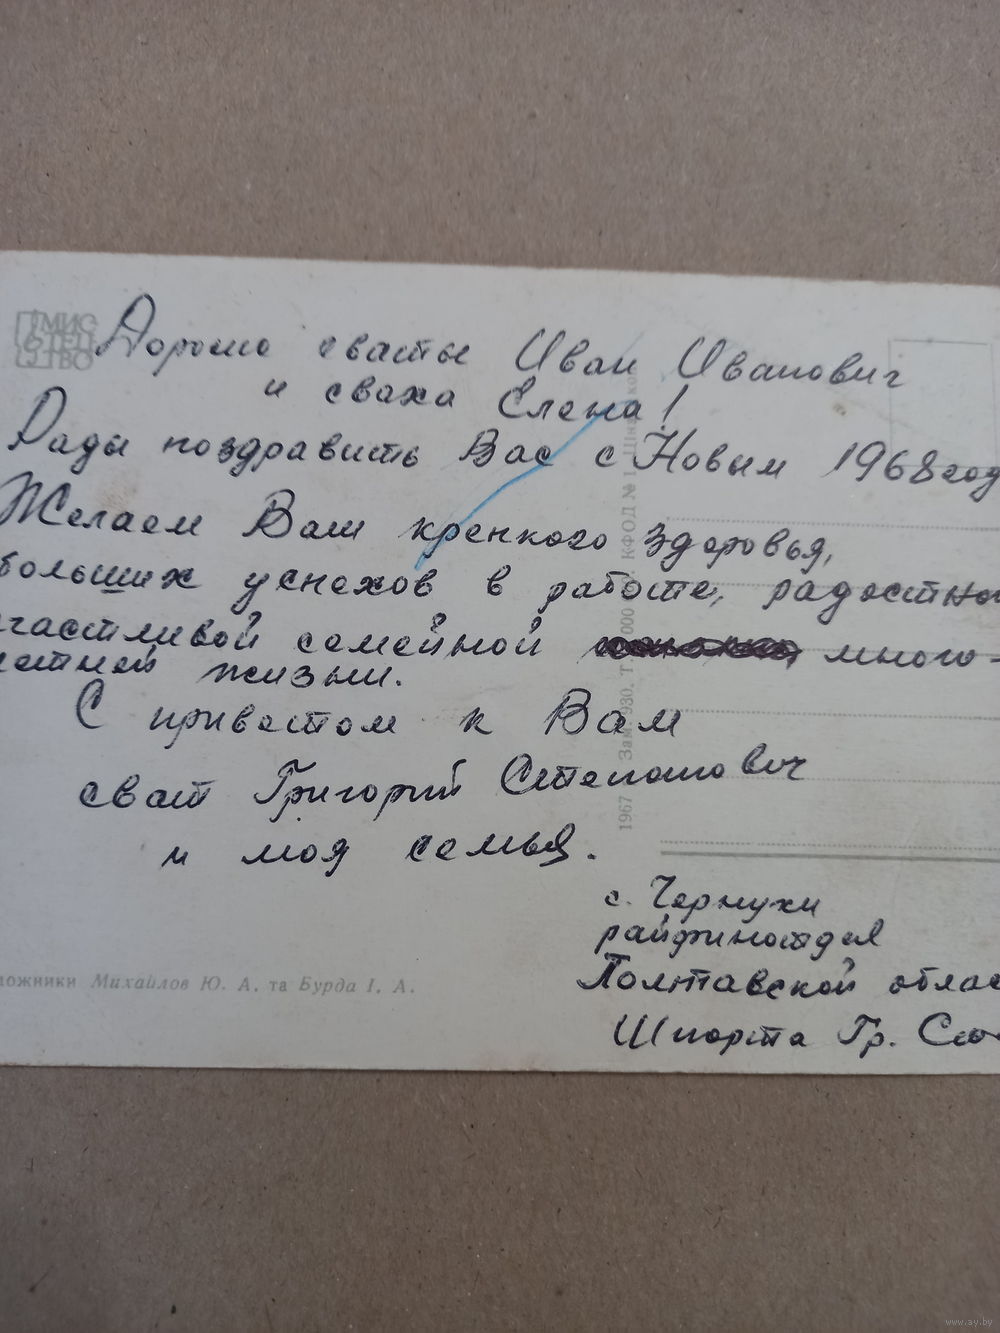 МИС
ТЕЦ
ТВО
Дорогие сваты Иван Иванович
и сваха Елена!
Рады поздравить Вас с Новым 1968 год
Желаем Вам крепкого здоровья,
больших успехов в работе, радостной
частливой семейной много-
летней жизни.
С приветом к Вам
сват Григорий Степанович
и моя семья.
с. Чернухи
райфинотдел
Полтавской облас
Шпорта Гр. Ст
ожники Михайлов Ю. А. та Бурда І. А.
1967 Зам. 930. Т. 000 КФОД № 1
www.ay.by